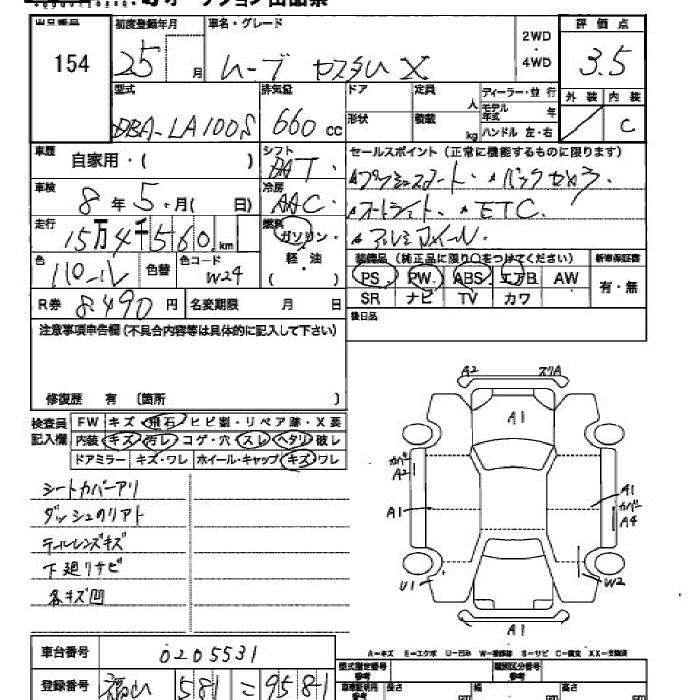 オークション出品票
出品番号 154
初度登録年月 25 月
車名・グレード ムーブ カスタム X
2WD・4WD
評価点 3.5
外装 内装 C
型式 DBA-LA100S
排気量 660 cc
ドア 形状
定員 人 積載 kg
ディーラー・並行
モデル年式 年
ハンドル 左・右
車歴 自家用・( )
シフト DAT
セールスポイント(正常に機能するものに限ります)
・プッシュスタート ・バックカメラ
車検 8年5月(日)
冷房 AAC
・オートライト ・ETC
走行 15万4千560km
燃料 ガソリン・軽・油( )
・アルミホイール
色 パール 色替 色コード W24
装備品(純正品に限り○をつけてください) 新車保証書
PS PW ABS エアB AW 有・無
SR ナビ TV カワ
R券 8490円 名変期限 月 日
後日品
注意事項申告欄(不具合内容等は具体的に記入して下さい)
修復歴 有 〔箇所 〕
検査員記入欄
FW キズ・飛石・ヒビ割・リペア跡・X要
内装 キズ・汚レ・コゲ・穴・スレ・ヘタリ・破レ
ドアミラー キズ・ワレ ホイール・キャップ キズ・ワレ
シートカバーアリ
ダッシュのリアト
テールレンズキズ
下廻りサビ
各キズ凹
A2 スリA
A1
カバー A2
A1
A1
カバー A4
U1
W2
A1
A-キズ E-エクボ U-凹み W-補修跡 S-サビ C-腐食 XX-交換済
車台番号 0205531
型式指定番号 参考
類別区分番号 参考
登録番号 福山 581 こ 9581
車庫証明用 参考 長さ cm 幅 cm 高さ cm